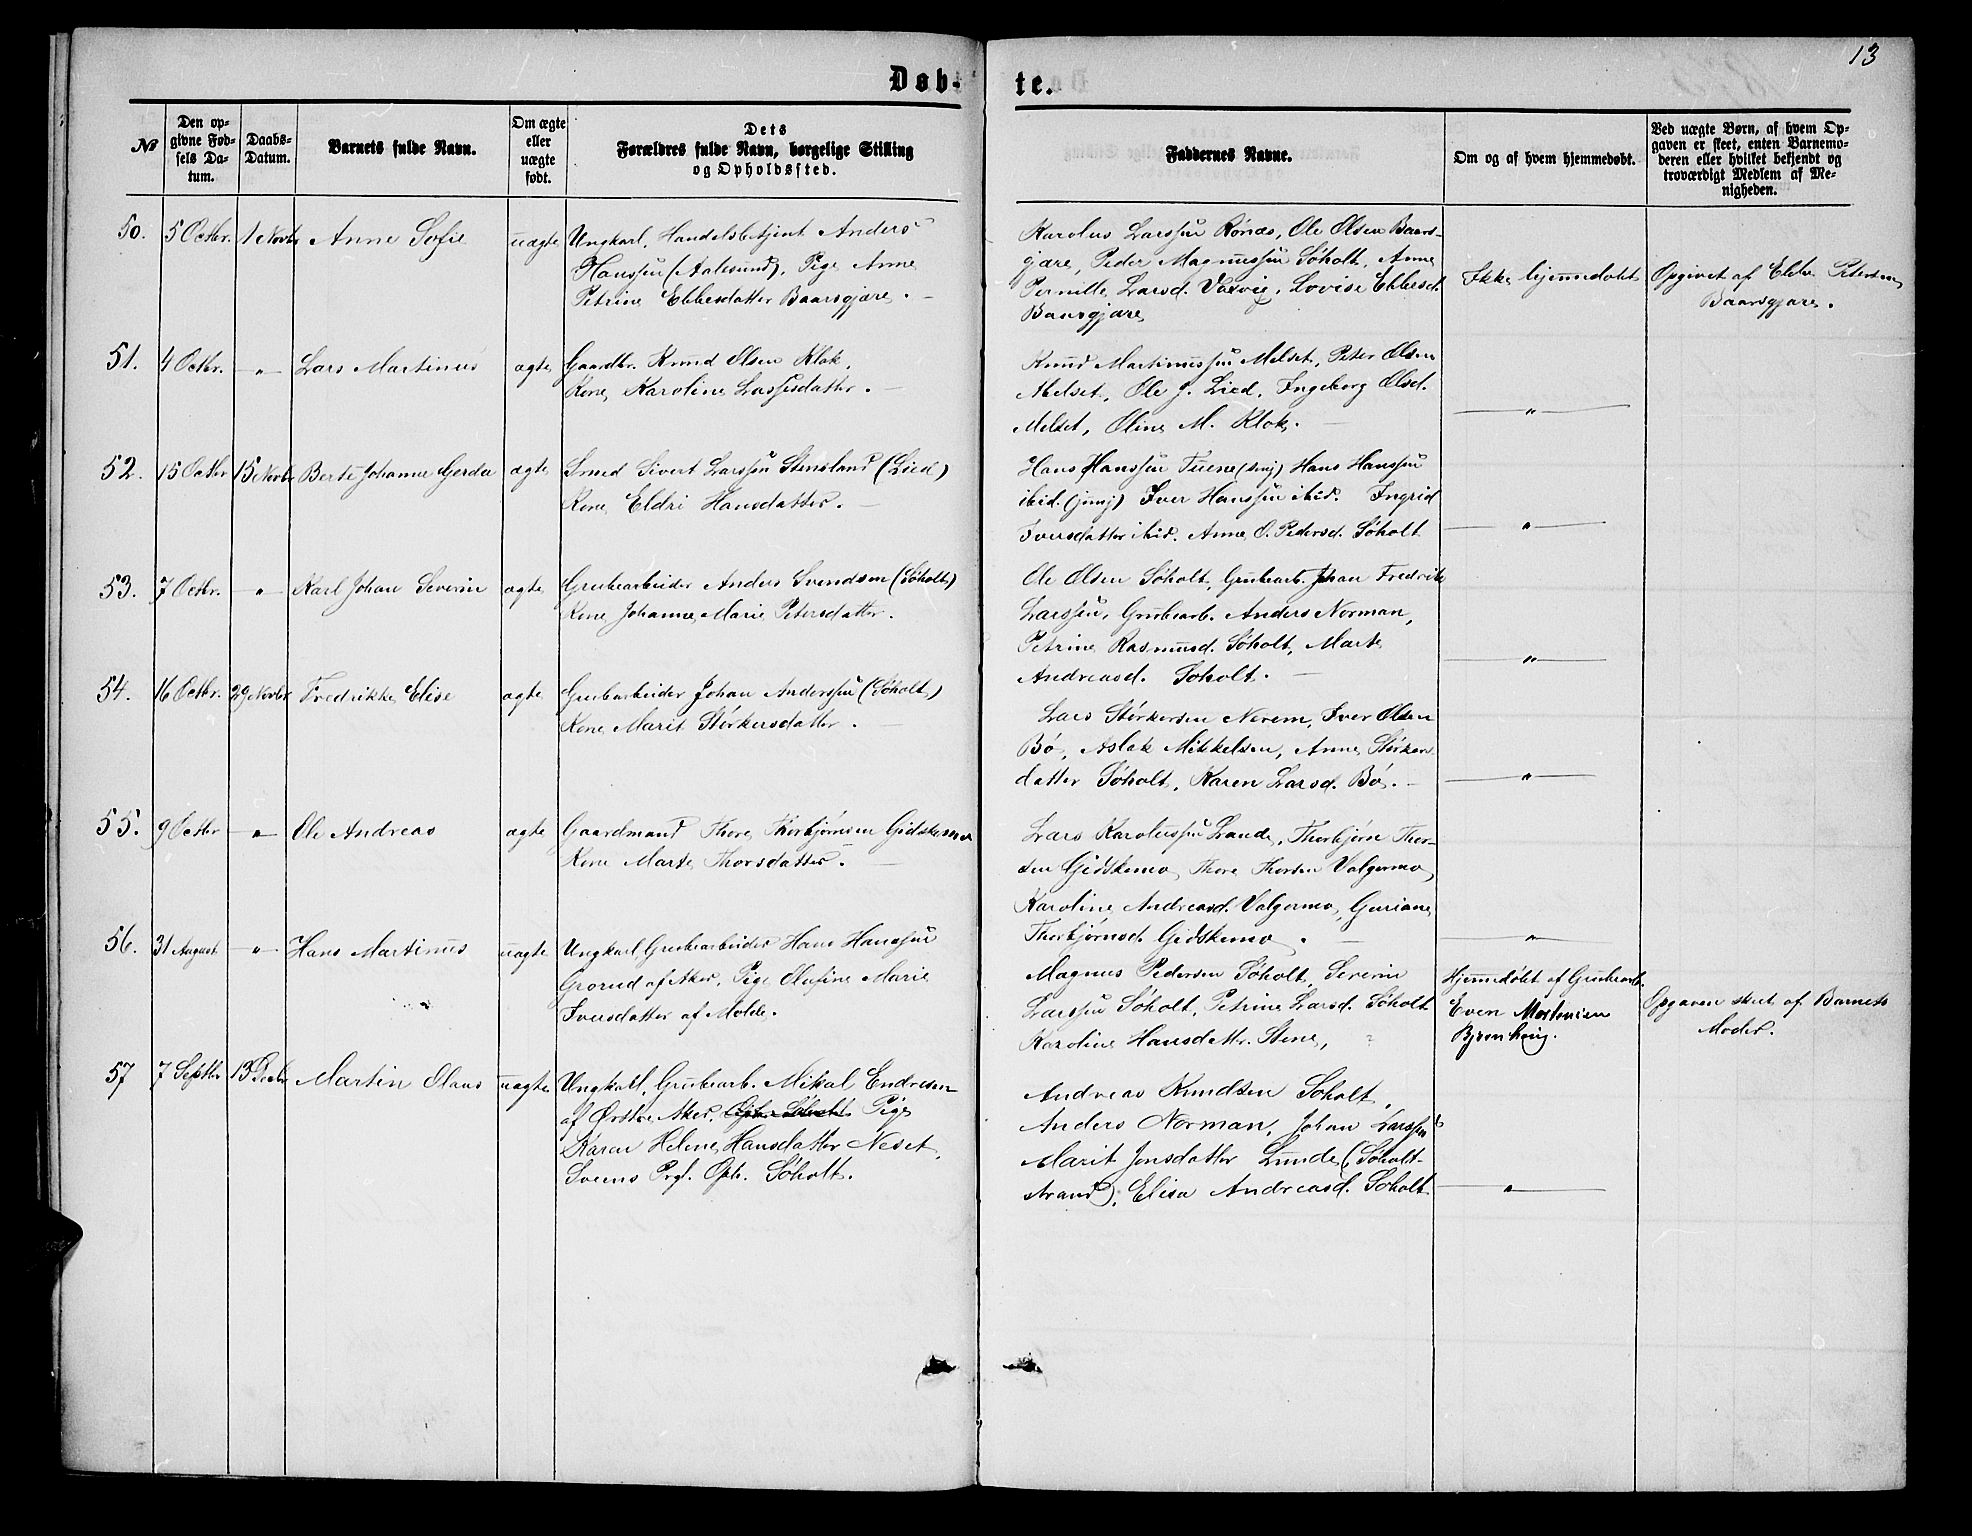 13
Døb-
te.
№
Den op-
givne Fød-
sels Da-
tum.
Daabs-
Datum.
Barnets fulde Navn.
Om ægte
eller
uægte
født.
Dets
Forældres fulde Navn, borgelige Stilling
og Opholdssted.
Faddernes Navne.
Om og af hvem hjemmedøbt.
Ved uægte Børn, af hvem Op-
gaven er skeet, enten Barnemo-
deren eller hvilket bekjendt og
troværdigt Medlem af Me-
nigheden.
50. 5 Octbr. 1 Novbr Anne Sofie uægte Ungkarl, Handelsbetjent Anders
Hanssen (Aalesund), Pige Anne
Petrine Ebbesdatter Baarsgjære. -
Karolus Larssen Rønæs, Ole Olsen Baars-
gjære, Peder Magnussen Søholt, Anne
Pernille Larsd. Vasvig, Lovise Ebbesd.
Baarsgjære
Ikke hjemmedøbt
Opgivet af Ebbe Petersen
Baarsgjære.
51. 4 Octbr. " Lars Martinus ægte Gaardbr. Knud Olsen Klok,
Kone Karoline Lassesdatter. -
Knud Martinussen Melset, Peter Olsen
Melset, Ole J. Lied, Ingeborg Olsd.
Melset, Oline M. Klok. -
"
52. 15 Octbr 15 Novbr Berte Johanne Gerda ægte Smed Sivert Larssen Stensland (Lied)
Kone Eldri Hansdatter. -
Hans Hanssen Tuene (senj) Hans Hanssen
ibid. (junj) Iver Hanssen ibid. Ingrid
Iversdatter ibid. Anne O. Pedersd. Søholt
"
53. 7 Octbr. " Karl Johan Severin ægte Grubearbeider Anders Svendsen (Søholt)
Kone Johanne Marie Petersdatter.
Ole Olsen Søholt, Grubearb. Johan Fredrik
Larssen, Grubearb. Anders Norman,
Petrine Rasmusd. Søholt, Marte
Andreasd. Søholt. -
"
54. 16 Octbr. 29 Novbr Fredrikke Elise ægte Grubearbeider Johan Anderssen (Søholt)
Kone Marit Størkersdatter. -
Lars Størkersen Nerem, Iver Olsen
Bø, Aslak Mikkelsen, Anne Størkers
datter Søholt, Karen Larsd. Bø. -
"
55. 9 Octbr " Ole Andreas ægte Gaardmand Thore Thorbjørnsen Gidskemo
Kone Marte Thorsdatter. -
Lars Karolussen Lande, Thorbjørn Thor-
sen Gidskemo, Thore Thorsen Valgermo,
Karoline Andreasd. Valgermo, Guriane
Thorbjørnsd. Gidskemo. -
"
56. 31 August " Hans Martinus uægte Ungkarl, Grubearbeider Hans Hanssen
Grorud af Aker, Pige Olafine Marie
Iversdatter af Molde.
Magnus Pedersen Søholt, Severin
Larssen Søholt, Petrine Larsd. Søholt
Karoline Hansdattr. Stene,
Hjemmedøbt af Grubearb.
Even Mortensen
Opgaven skeet af Barnets
Moder.
57 7 Septbr 13 Decbr Martin Olaus uægte Ungkarl, Grubearb. Mikal Endresen
af Østre Aker, Pige
Karen Helene Hansdatter Neset,
Sveens Prgl. Oph. Søholt.
Andreas Knudsen Søholt,
Anders Norman, Johan Larssen
Marit Jonsdatter Lunde (Søholt-
strand), Elisa Andreasd. Søholt
"